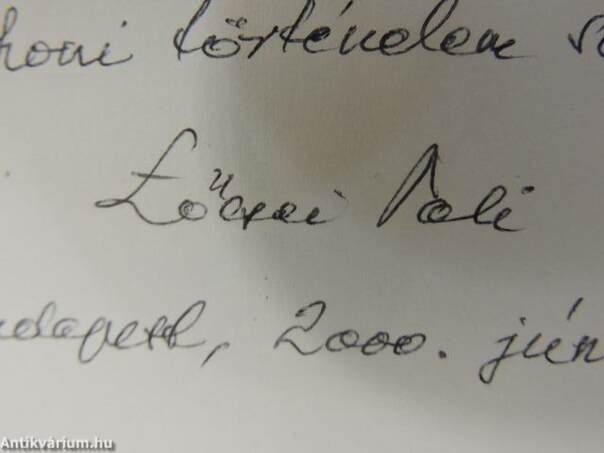 honi történelem
Lőcsei Pali
Budapest, 2000. jún
Antikvárium.hu